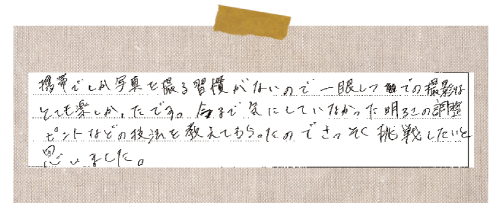 携帯でしか写真を撮る習慣がないので一眼レフでの撮影は
とても楽しかったです。今まで気にしていなかった明るさの調整
ピントなどの技法を教えてもらったのでさっそく挑戦したいと
思いました。